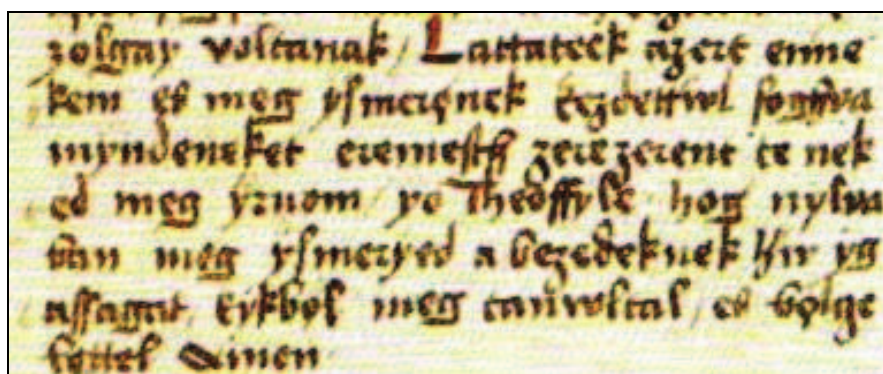 zolgay voltanak / Lattateek azert enne
kem es meg ysmerenek kezdettwl fogwa
myndeneket eremesth zerezerent te nek
ed meg yrnom yo Theoffyle hog nylua
ban meg ysmeryed a bezedeknek hyr yg
assagat, kykbol meg tanwoltal / es bolge
kettel Amen